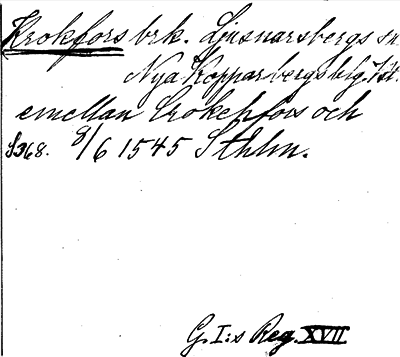 Krokfors brk. Ljusnarsbergs sn.
Nya Kopparbergs blg. Vstl.
emellan Crokefors och
S368. 8/6 1545 Sthlm.
G. I:s Reg. XVII